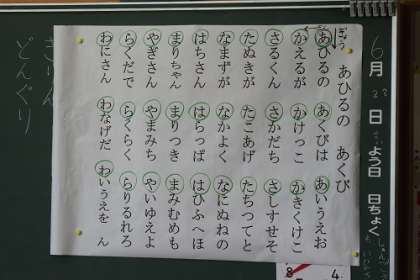 あひるの あくび
あひるの あくびは あいうえお
かえるが かけっこ かきくけこ
さるくん さかだち さしすせそ
たぬきが たこあげ たちつてと
なまずが なかよく なにぬねの
はちさん はらっぱ はひふへほ
まりちゃん まりつき まみむめも
やぎさん やまみち やいゆえよ
らくだで らくらく らりるれろ
わにさん わなげだ わいうえを ん
6月 日 よう日 日ちょく
どんぐり
8
4